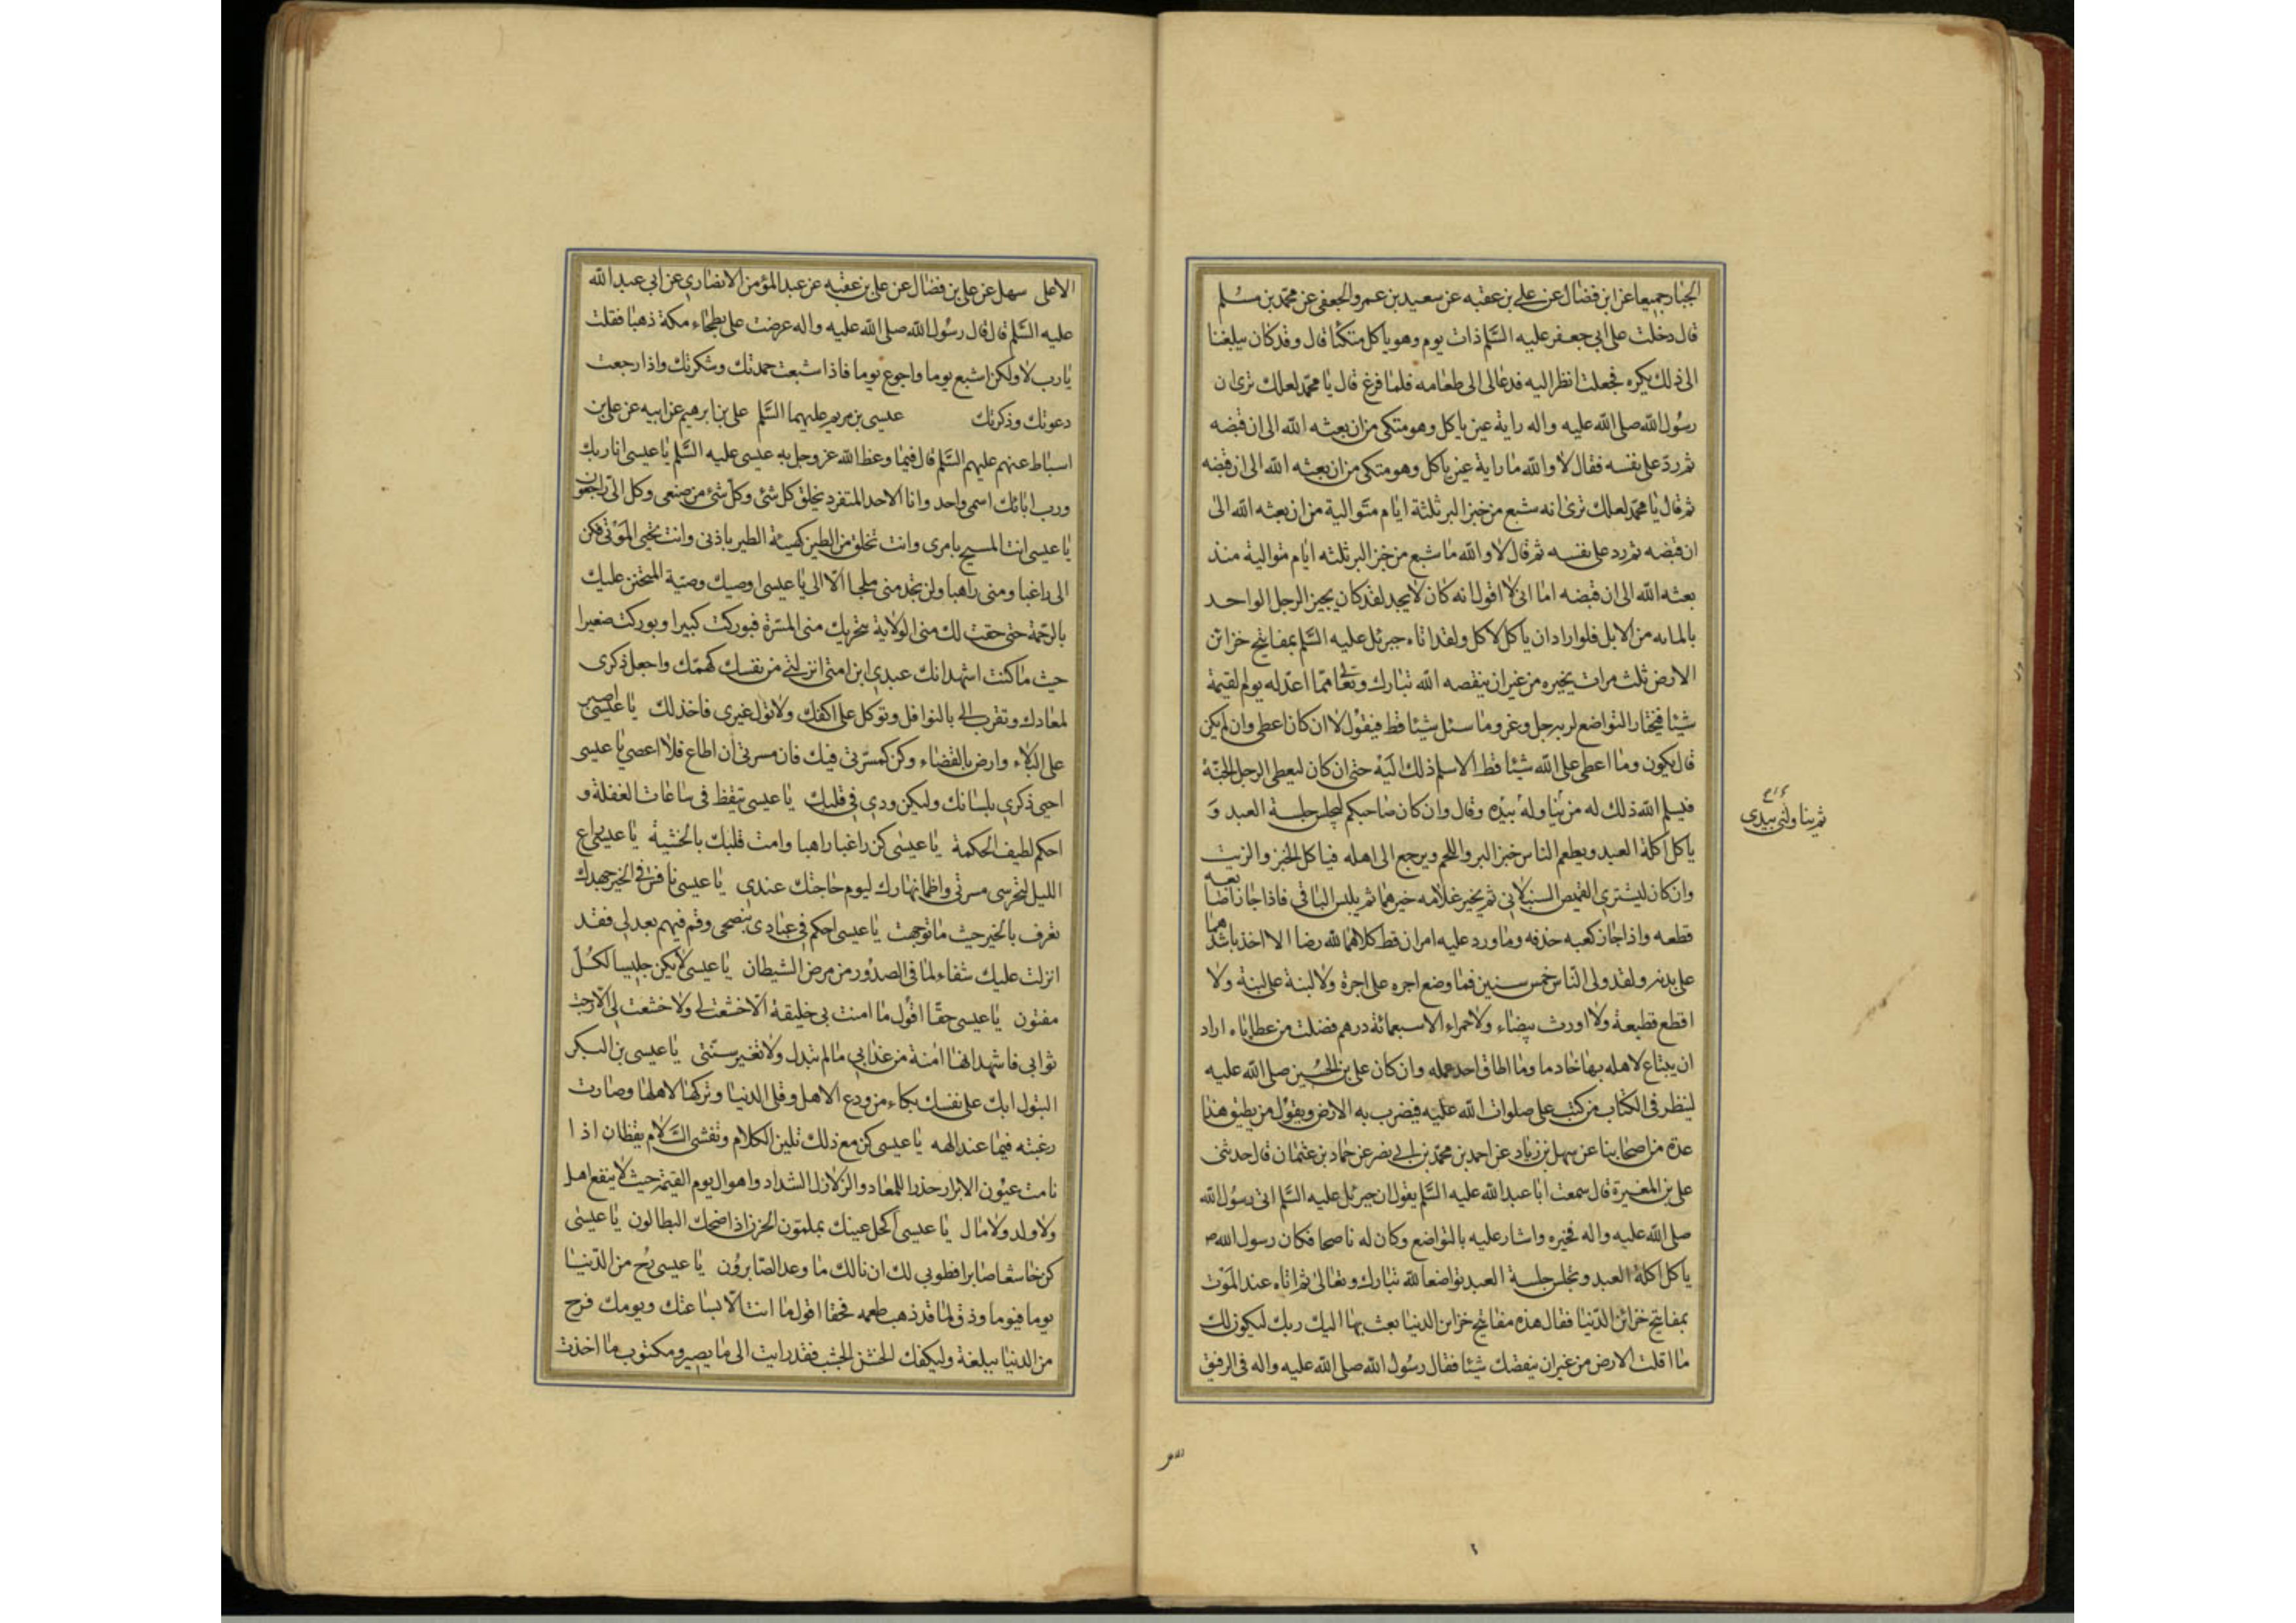 الجبار جميعا عن ابن فضال عن علي بن عقبه عن سعيد بن عمرو الجعفى عن محمد بن مسلم
قال دخلت على ابي جعفر عليه السلم ذات يوم وهو ياكل متكئا قال وقد كان يبلغنا
الى ذلك يكره فجعلت انظر اليه فدعانى الى طعامه فلما فرغ قال يا محمد لعلك ترى ان
رسول الله صلى الله عليه واله راية عين ياكل وهو متكى من ان بعثه الله الى ان قبضه
ثم رد على نفسه فقال لا والله ما راية عين ياكل وهو متكى من ان بعثه الله الى ان قبضه
ثم قال يا محمد لعلك ترى انه شبع من خبز البر ثلثة ايام متوالية من ان بعثه الله الى
ان قبضه ثم رد على نفسه ثم قال لا والله ما شبع من خبز البر ثلثه ايام متوالية منذ
بعثه الله الى ان قبضه اما انى لا اقول انه كان لا يجد لقد كان يجيز الرجل الواحد
بالمايه من الابل فلو اراد ان ياكل لاكل ولقد اتاه جبرئل عليه السلم بمفاتيح خزائن
الارض ثلث مرات يخيره من غير ان ينقصه الله تبارك وتعالى مما اعد له يوم القيمة
شيئا فيختار التواضع لربه جل وعز وما سئل شيئا قط فيقول لا ان كان اعطى وان لم يكن
قال يكون وما اعطى على الله شيئا قط الا سلم ذلك اليه حتى ان كان ليعطى الرجل الجنة
فيسلم الله ذلك له من يناوله بيده وقال وان كان صاحبكم ليجلس جلسة العبد و
ثم يناولنى بيدى
ياكل اكلة العبد ويطعم الناس خبز البر واللحم ويرجع الى اهله فياكل الخبز والزيت
وان كان ليشترى القميص السنبلانى ثم يخير غلامه خيرهما ثم يلبس الباقى فاذا جاز اصابعه
قطعه واذا جاز كعبه حذفه وما ورد عليه امران قط كلاهما لله رضا الا اخذ باشدهما
على بدنه ولقد ولى الناس خمس سنين فما وضع اجره على اجرة ولا لبنة على لبنة ولا
اقطع قطيعة ولا اورث بيضاء ولا حمراء الا سبعمائة درهم فضلت من عطاياه اراد
ان يبتاع لاهله بها خادما وما اطاق احد عمله وان كان على بن الحسين صلى الله عليه
لينظر فى الكتاب من كتب على صلوات الله عليه فيضرب به الارض ويقول من يطيق هذا
عدة من اصحابنا عن سهل بن زياد عن احمد بن محمد بن ابي نصر عن حماد بن عثمان قال حدثنى
على بن المغيرة قال سمعت ابا عبد الله عليه السلم يقول ان جبرئل عليه السلم اتى رسول الله
صلى الله عليه واله فخيره واشار عليه بالتواضع وكان له ناصحا فكان رسول الله ص
ياكل اكلة العبد ويجلس جلسة العبد تواضعا لله تبارك وتعالى ثم اتاه عند الموت
بمفاتيح خزائن الدنيا فقال هذه مفاتيح خزاين الدنيا بعث بها اليك ربك ليكون لك
ما اقلت الارض من غير ان ينقصك شيئا فقال رسول الله صلى الله عليه واله فى الرفيق
الاعلى سهل عن على بن فضال عن على بن عقبه عن عبد المؤمن الانصاري عن ابى عبد الله
عليه السلم قال قال رسول الله صلى الله عليه واله عرضت على بطحاء مكة ذهبا فقلت
يا رب لا ولكن اشبع يوما واجوع يوما فاذا شبعت حمدتك وشكرتك واذا رجعت
دعوتك وذكرتك عيسى بن مريم عليهما السلم على بن ابرهيم عن ابيه عن على بن
اسباط عنهم عليهم السلم قال فيما وعظ الله عز وجل به عيسى عليه السلم يا عيسى انا ربك
ورب ابائك اسمى واحد وانا الاحد المتفرد بخلق كل شئ وكل شئ من صنعى وكل الى راجعون
يا عيسى انت المسيح بامرى وانت تخلق من الطين كهيئة الطير باذنى وانت تحيى الموتى فكن
الى راغبا ومنى راهبا ولن تجد منى ملجا الا الى يا عيسى اوصيك وصية المتحنن عليك
بالرحمة حتى حقت لك منى الولاية بتحريك منى المسرة فبوركت كبيرا وبوركت صغيرا
حيث ما كنت اشهد انك عبدى ابن امتى انزلنى من نفسك كهمك واجعل ذكرى
لمعادك وتقرب الى بالنوافل وتوكل على اكفك ولا تول غيرى فاخذلك يا عيسى اصبر
على البلاء وارض بالقضاء وكن كمسرتى فيك فان مسرتى ان اطاع فلا اعصى يا عيسى
احيى ذكرى بلسانك وليكن ودى فى قلبك يا عيسى تيقظ فى ساعات الغفلة و
احكم لطيف الحكمة يا عيسى كن راغبا راهبا وامت قلبك بالخشية يا عيسى راع
الليل لتحرى مسرتى واظما نهارك ليوم حاجتك عندى يا عيسى نافس فى الخير جهدك
تعرف بالخير حيث ما توجهت يا عيسى احكم فى عبادى بنصحى وقم فيهم بعدلى فقد
انزلت عليك شفاء لما فى الصدور من مرض الشيطان يا عيسى لا تكن جليسا لكل
مفتون يا عيسى حقا اقول ما امنت بى خليقة الا خشعت لى ولا خشعت لى الا رجت
ثوابى فاشهد انها امنة من عذابى ما لم تبدل ولا تغير سنتى يا عيسى بن البكر
البتول ابك على نفسك بكاء من ودع الاهل وقلى الدنيا وتركها لاهلها وصارت
رغبته فيما عند الهه يا عيسى كن مع ذلك تلين الكلام وتفشى السلام يقظان اذا
نامت عيون الابرار حذرا للمعاد والزلازل الشداد واهوال يوم القيمة حيث لا ينفع اهل
ولا ولد ولا مال يا عيسى اكحل عينك بملمول الحزن اذا ضحك البطالون يا عيسى
كن خاشعا صابرا فطوبى لك ان نالك ما وعد الصابرون يا عيسى رح من الدنيا
يوما فيوما وذق لما قد ذهب طعمه فحقا اقول ما انت الا بساعتك ويومك فرح
من الدنيا ببلغة وليكفك الخشن الجشب فقد رايت الى ما يصير ومكتوب ما اخذت